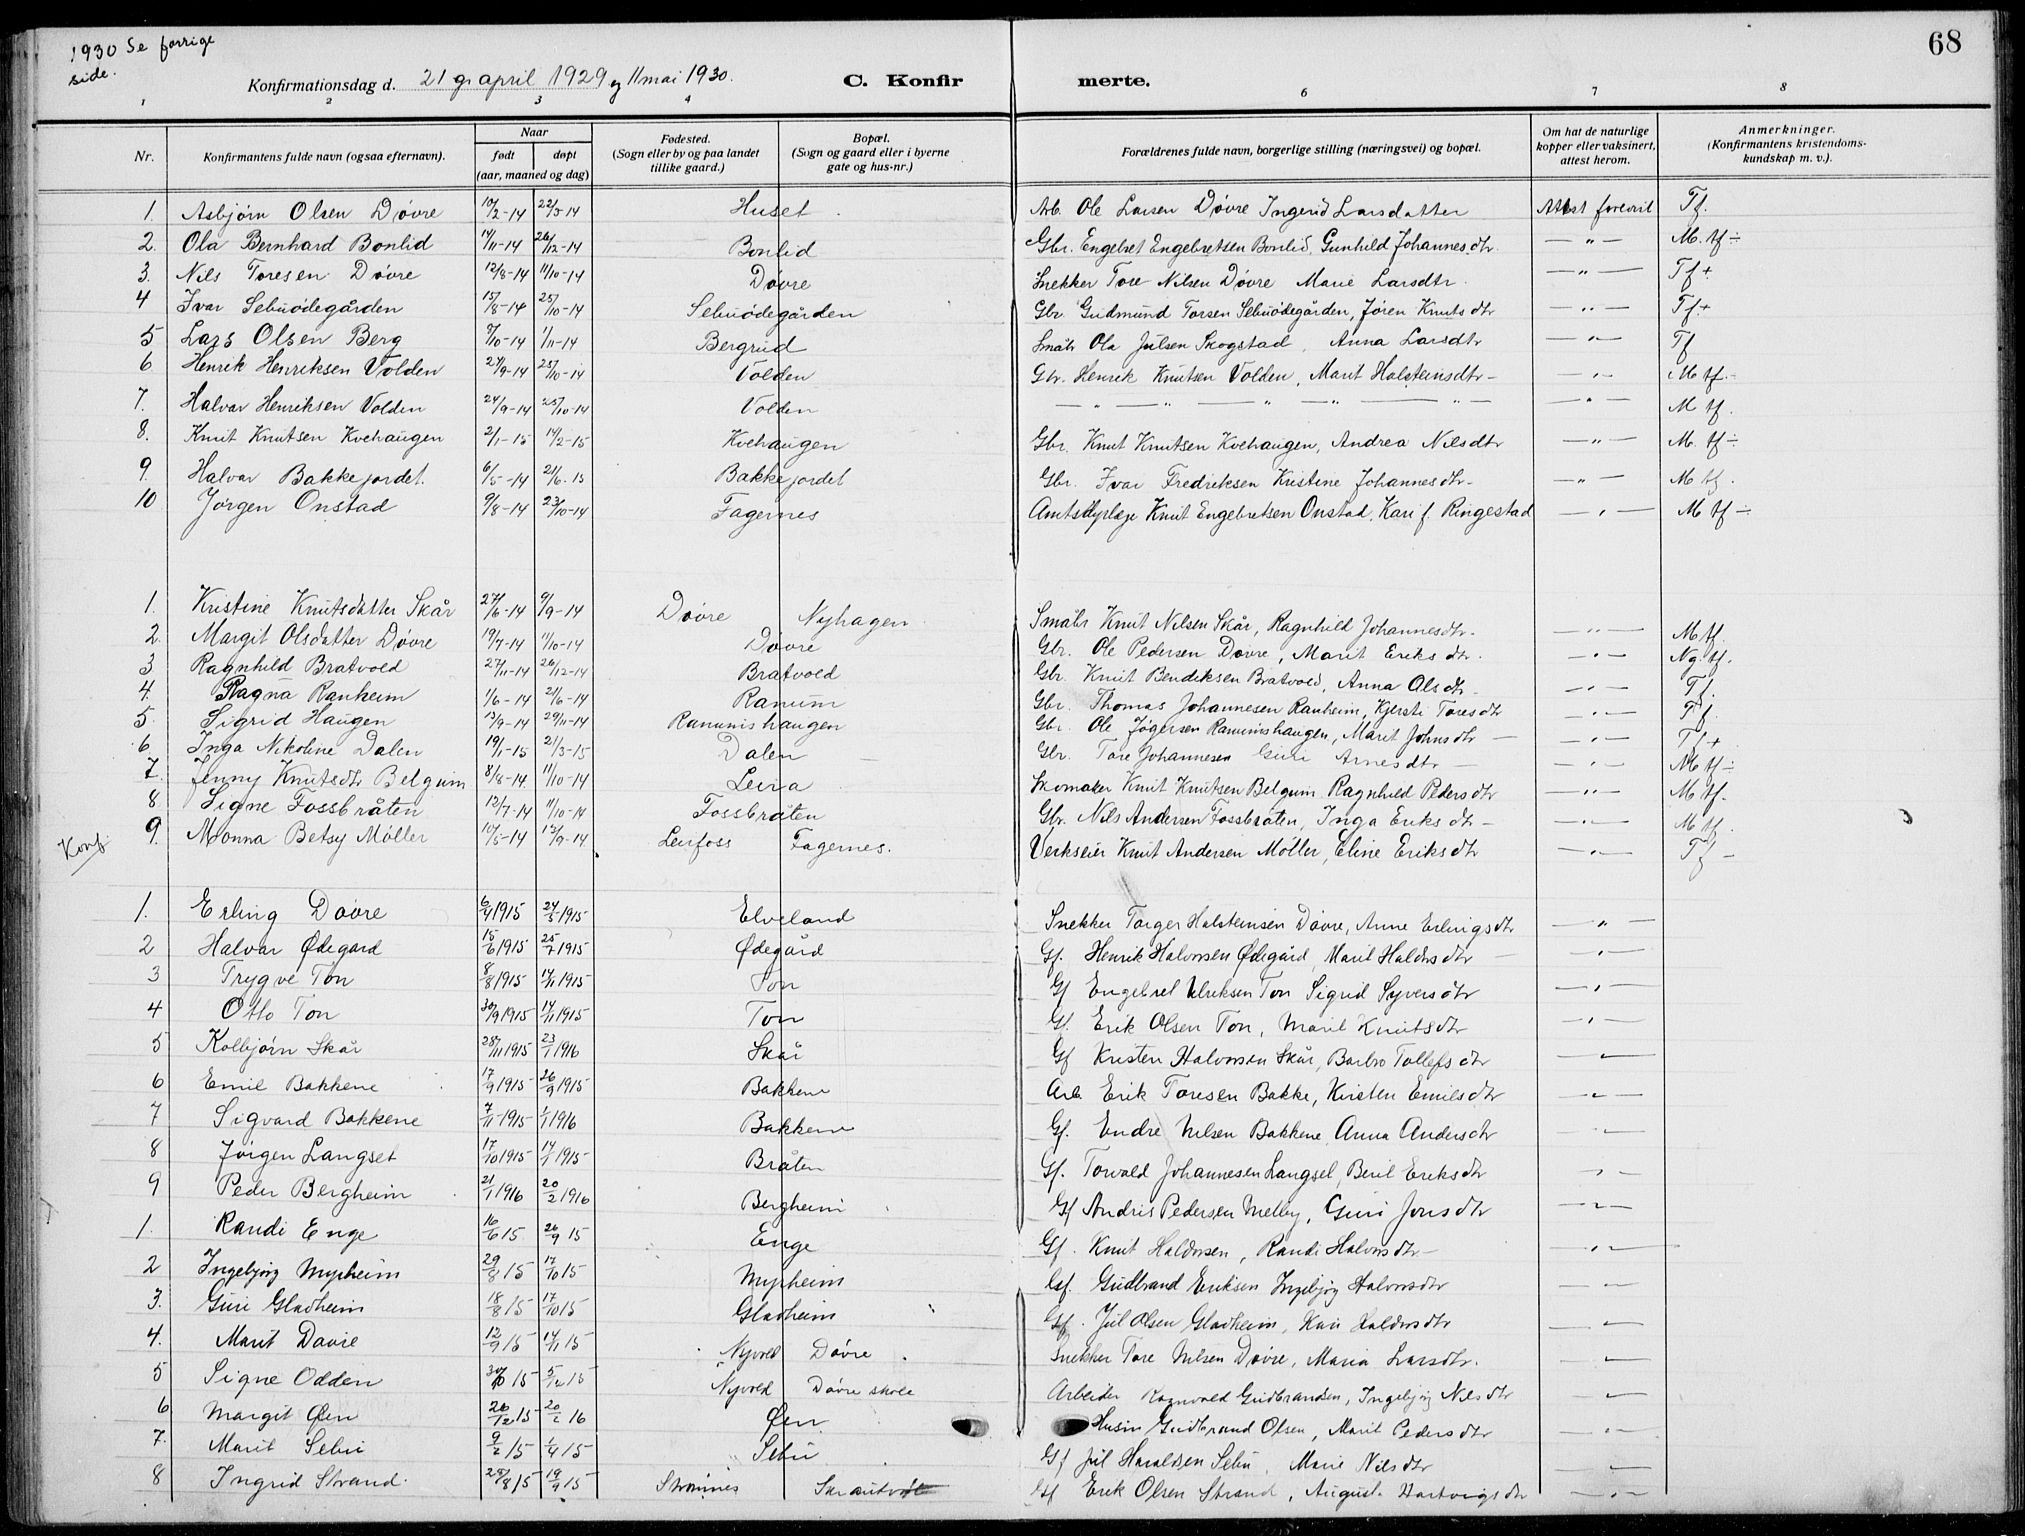 1930 Se forrige
side.
68
Konfirmationsdag d. 21 gr april 1929 og 11 mai 1930.
C. Konfir
merte.
1 2 3 4 6 7 8
Nr. Konfirmantens fulde navn (ogsaa efternavn). Naar født døpt (aar, maaned og dag) Fødested. (Sogn eller by og paa landet tillike gaard.) Bopæl. (Sogn og gaard eller i byerne gate og hus-nr.) Forældrenes fulde navn, borgerlige stilling (næringsvei) og bopæl. Om hat de naturlige kopper eller vaksinert, attest herom. Anmerkninger. (Konfirmantens kristendoms-kundskap m. v.).
1. Asbjørn Olsen Døvre 10/2-14 22/3-14 Huset Arb. Ole Larsen Døvre Ingerid Larsdatter Attest forevist Tf.
2. Ola Bernhard Bonlid 14/11-14 26/12-14 Bonlid Gbr. Engebret Engebretsen Bonlid, Gunhild Johannesdtr. —"— M. tf ÷
3. Nils Toresen Døvre 12/8-14 11/10-14 Døvre Snekker Tore Nilsen Døvre Marie Larsdtr. —"— Tf +
4 Ivar Sebuødegården 15/8-14 25/10-14 Sebuødegården Gbr. Gudmund Torsen Sebuødegården, Jøren Knutsdtr —"— Tf. +
5 Lars Olsen Berg 9/10-14 1/11-14 Bergrud Småbr Ola Julsen Skogstad, Anna Larsdtr —"— Tf
6 Henrik Henriksen Volden 24/9-14 25/10-14 Volden Gbr. Henrik Knutsen Volden, Marit Halsteinsdtr — —"— M tf. -
7. Halvar Henriksen Volden 24/9-14 25/10-14 Volden —"— —"— —"— —"— —"— —"— M tf.
8. Knut Knutsen Kvehaugen 2/1-15 14/2-15 Kvehaugen Gbr. Knut Knutsen Kvehaugen, Andrea Nilsdtr —"— M. tf ÷
9. Halvar Bakkejordet. 6/5-14 21/6-15 Bakkejordet Gbr. Ivar Fredriksen Kristine Johannesdtr. —"— M tf.
10 Jørgen Onstad 9/8-14 23/10-14 Fagernes Amtsdyrlæge Knut Engebretsen Onstad, Kari f. Ringestad —"— M tf ÷
1. Kristine Knutsdatter Skår 27/6-14 9/9-14 Døvre Nyhagen Småbr Knut Nilsen Skår, Ragnhild Johannesdtr. —"— M tf.
2. Margit Olsdatter Døvre 19/7-14 11/10-14 Døvre Gbr. Ole Pedersen Døvre, Marit Eriksdtr. —"— Ng. tf.
3 Ragnhild Bratvold 27/11-14 26/12-14 Bratvold Gbr. Knut Bendiksen Bratvold, Anna Olsdtr —"— Tf.
4. Ragna Ranheim 1/6-14 21/6-14 Ranum Gbr. Thomas Johannesen Ranheim, Kjersti Toresdtr —"— Tf.
5. Sigrid Haugen 13/9-14 29/11-14 Ranumshaugen Gbr. Ole Jøgersen Ranumshaugen, Marit Johnsdtr — —"— Tf +
6. Inga Nikoline Dalen 19/1-15 21/3-15 Dalen — Gbr. Tore Johannesen Guri Arnesdtr — —"— M tf ÷
7. Jenny Knutsdtr Belgum 8/8-14 11/10-14 Leira Skomaker Knut Knutsen Belgum Ragnhild Pedersdtr —"— M tf.
8 Signe Fossbråten 12/7-14 11/10-14 Fossbråten Gbr. Nils Andersen Fossbråten, Inga Eriksdtr — —"— M tf.
Konf. 9. Monna Betsy Møller 10/5-14 12/9-14 Leirfoss Fagernes. Verkseier Knut Andersen Møller, Eline Eriksdtr —"— Tf —
1. Erling Døvre 6/4 1915 24/5 1915 Elveland Snekker Torger Halsteinsen Døvre, Anne Erlingsdtr —"—
2 Halvar Ødegard 15/6 1915 25/7 1915 Ødegård Gf. Henrik Halvorsen Ødegård, Marit Haldorsdtr — —"—
3 Trygve Ton 8/8 1915 14/11 1915 Ton Gf Engebret Ulriksen Ton Sigrid Syversdtr —"—
4 Otto Ton 30/9 1915 14/11 1915 Ton Gf. Erik Olsen Ton, Marit Knutsdtr —"—
5 Kolbjørn Skår 28/11 1915 23/1 1916 Skår Gf Kristen Halvorsen Skår, Barbro Tollefsdtr —"—
6 Emil Bakkene 17/9 1915 26/9 1915 Bakkene Arb. Erik Toresen Bakke, Kirsten Emilsdtr —"—
7 Sigvard Bakkene 7/11 1915 1/1 1916 Bakkene Gf. Endre Nilsen Bakkene, Anna Andersdtr —"—
8 Jørgen Langset 17/10 1915 14/1 1915 Bråten Gf. Torvald Johannesen Langset, Beril Eriksdtr —"—
9 Peder Bergheim 21/1 1916 20/2 1916 Bergheim Gf Andris Pedersen Melby, Guri Jonsdtr —"—
1. Randi Enge 16/6 15 26/9 15 Enge Gf. Knut Haldorsen, Randi Halvorsdtr — —"—
2 Ingebjørg Myrheim 29/8 15 17/10 15 Myrheim Gf. Gudbrand Eriksen Ingebjørg Halvorsdtr —"—
3. Guri Gladheim 18/8 15 17/10 15 Gladheim Gf. Jul Olsen Gladheim, Kari Haldorsdtr —"—
4. Marit Døvre 12/9 15 14/11 15 Nyvold Døvre Snekker Tore Nilsen Døvre, Maria Larsdtr. —"—
5 Signe Odden 30/10 15 5/12 15 Nyvold Døvre skole Arbeider Ragnvald Gudbrandsen, Ingebjørg Nilsdtr —"—
6 Margit Øen 26/12 15 20/2 16 Øen Husm Gudbrand Olsen, Marit Pedersdtr —"—
7. Marit Sebu 9/2 15 1/4 15 Sebu Gf Jul Haraldsen Sebu, Marie Nilsdtr —"—
8 Ingrid Strand. 29/8 15 19/9 15 Strømnes Skrautvål Gf Erik Olsen Strand, August. Hartvigsdtr —"—